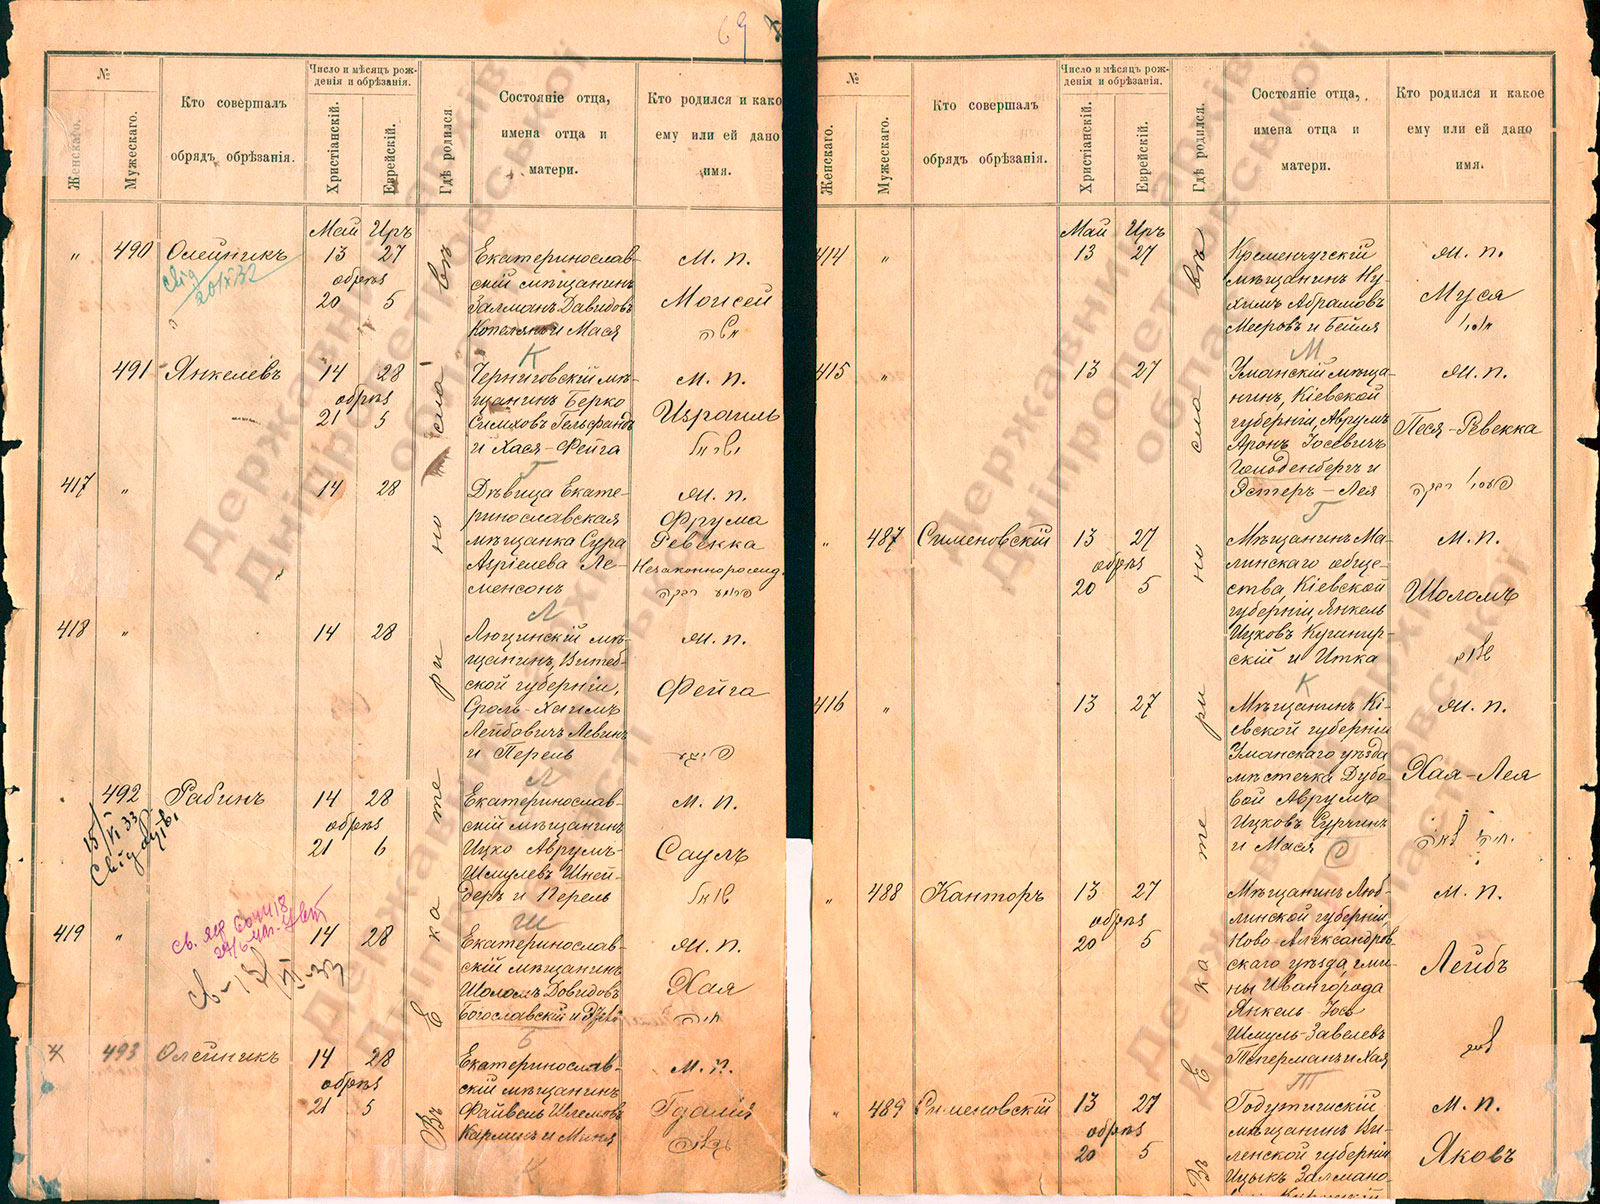 69
№
Женскаго.
Мужескаго.
Кто совершалъ
обрядъ обрѣзанія.
Число и мѣсяцъ рож-
денія и обрѣзанія.
Христіанскій.
Еврейскій.
Гдѣ родился
Состояніе отца,
имена отца и
матери.
Кто родился и како
ему или ей дано
имя.
Май Иръ
„ 490 Олейникъ 13 27
обрѣз
20 5
Екатеринослав-
скій мѣщанинъ
Залманъ Давидовъ
и Мася
М. п.
Моисей
משה
К
491 Янкелевъ 14 28
обрѣз
21 5
Черниговскій мѣ-
щанинъ Берко
Симховъ Гельфандъ
и Хася-Фейга
М. п.
Израиль
ישראל
Г
417 „ 14 28
Дѣвица Екате-
ринославская
мѣщанка Сура
Азріелева Ле-
менсонъ
М. п.
Фрума
Ревекка
Незаконнорожд.
פרומע רבקה
Л
418 „ 14 28
Люцинскій мѣ-
щанинъ, Витеб-
ской губерніи,
Сроль-Хаимъ
Лейбовичъ Левинъ
и Перель
М. п.
Фейга
פייגע
Л
492 Рабинъ 14 28
обрѣз
21 6
Екатеринослав-
скій мѣщанинъ
Ицко Аврумъ-
Шмулевъ Шней-
деръ и Перель
М. п.
Саулъ
שאול
15/VI 33
Ш
419 „ 14 28
Екатеринослав-
скій мѣщанинъ
Шоломъ Довидовъ
Богославскій и
М. п.
Хая
חיה
Б
493 Олейникъ 14 28
обрѣз
21 5
Екатеринослав-
скій мѣщанинъ
Файвель Шлемовъ
Карлинъ и Миня
М. п.
Гдалія
גדליה
К
Въ Екатеринославѣ
№
Женскаго.
Мужескаго.
Кто совершалъ
обрядъ обрѣзанія.
Число и мѣсяцъ рож-
денія и обрѣзанія.
Христіанскій.
Еврейскій.
Гдѣ родился.
Состояніе отца,
имена отца и
матери.
Кто родился и какое
ему или ей дано
имя.
Май Иръ
414 „ 13 27
Кременчугскій
мѣщанинъ Ну-
химъ Абрамовъ
Мееровъ и Бейля
М. п.
Муся
מוסי
М
415 „ 13 27
Уманскій мѣща-
нинъ, Кіевской
губерніи, Аврумъ
Аронъ Іосевичъ
Эстеръ-Лея
М. п.
Песя-Ревекка
פעסי רבקה
Г
„ 487 Сименовскій 13 27
обрѣз
20 5
Мѣщанинъ Ма-
линскаго обще-
ства, Кіевской
губерніи, Янкель
Ицковъ Кушнир-
скій и Итка
М. п.
Шоломъ
שלום
К
416 „ 13 27
Мѣщанинъ Кі-
евской губерніи
Уманскаго уѣзда
мѣстечка Дубо-
вой Аврумъ
Ицковъ Сурчинъ
и Мася
М. п.
Хая-Лея
חיה לאה
С
„ 488 Канторъ 13 27
обрѣз
20 5
Мѣщанинъ Люб-
линской губерніи
Ново-Александров-
скаго уѣзда, гми-
ны Ивангорода
Янкель Іось
Шмуль-Завелевъ
Теперманъ и Хая
М. п.
Лейбъ
לייב
Т
„ 489 Сименовскій 13 27
обрѣз
20 5
Годутишскій
мѣщанинъ Ви-
ленской губерніи
Ицыкъ Залмано-
М. п.
Яковъ
Въ Екатеринославѣ
Державний архів
Дніпропетровської
області